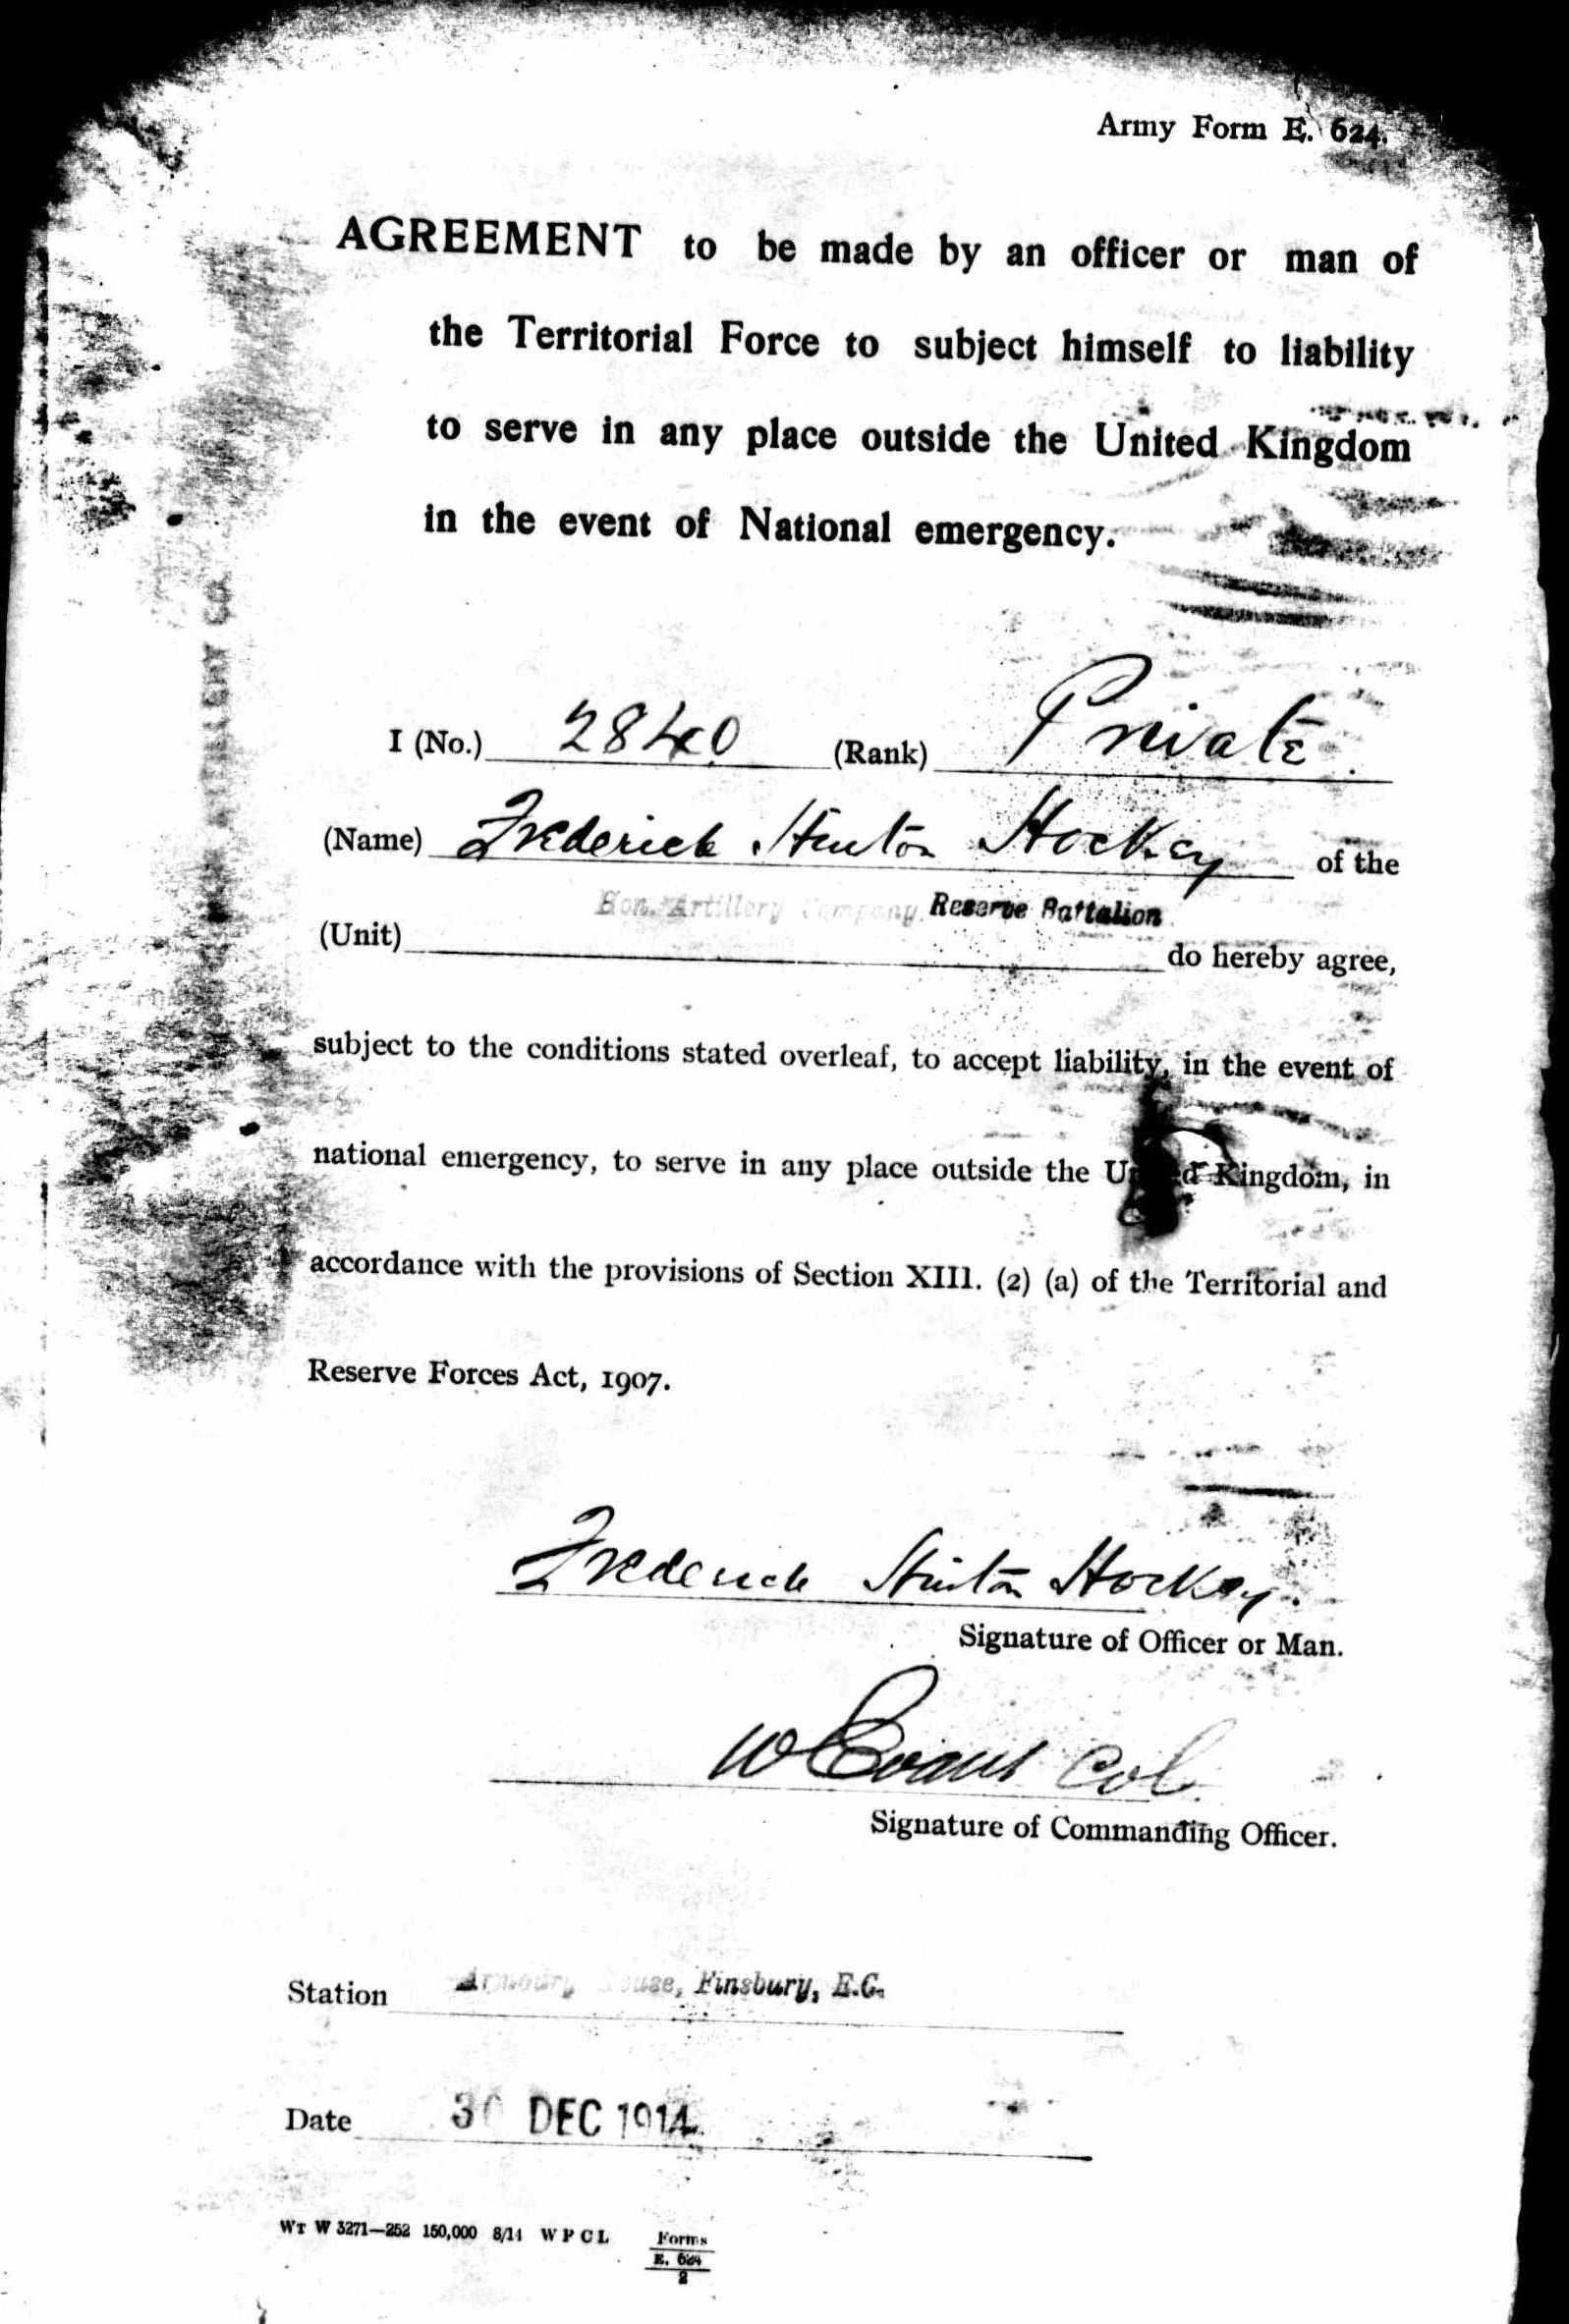 Army Form E. 624.
AGREEMENT to be made by an officer or man of
the Territorial Force to subject himself to liability
to serve in any place outside the United Kingdom
in the event of National emergency.
I (No.) 2840 (Rank) Private
(Name) Frederick Stinton Hockey of the
Hon. Artillery Company. Reserve Battalion
(Unit) do hereby agree,
subject to the conditions stated overleaf, to accept liability, in the event of
national emergency, to serve in any place outside the United Kingdom, in
accordance with the provisions of Section XIII. (2) (a) of the Territorial and
Reserve Forces Act, 1907.
Frederick Stinton Hockey.
Signature of Officer or Man.
W Evans Col.
Signature of Commanding Officer.
Station Armoury House, Finsbury, E.C.
Date 30 DEC 1914
WT W 3271—252 150,000 8/14 W P C L Forms
E. 624
2